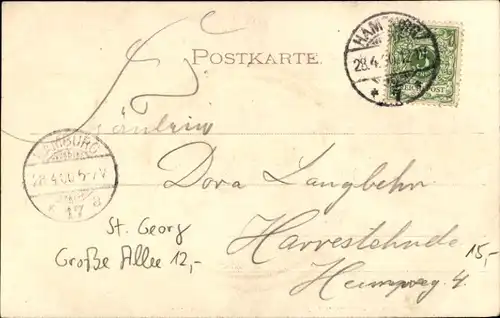 POSTKARTE
HAMBURG
28.4.00
Fräulein
HAMBURG
28.4.00 5-7 V
17 a
Dora Langbehn
St. Georg
Große Allee 12,-
Harvestehude
15,-
Heimweg 4.